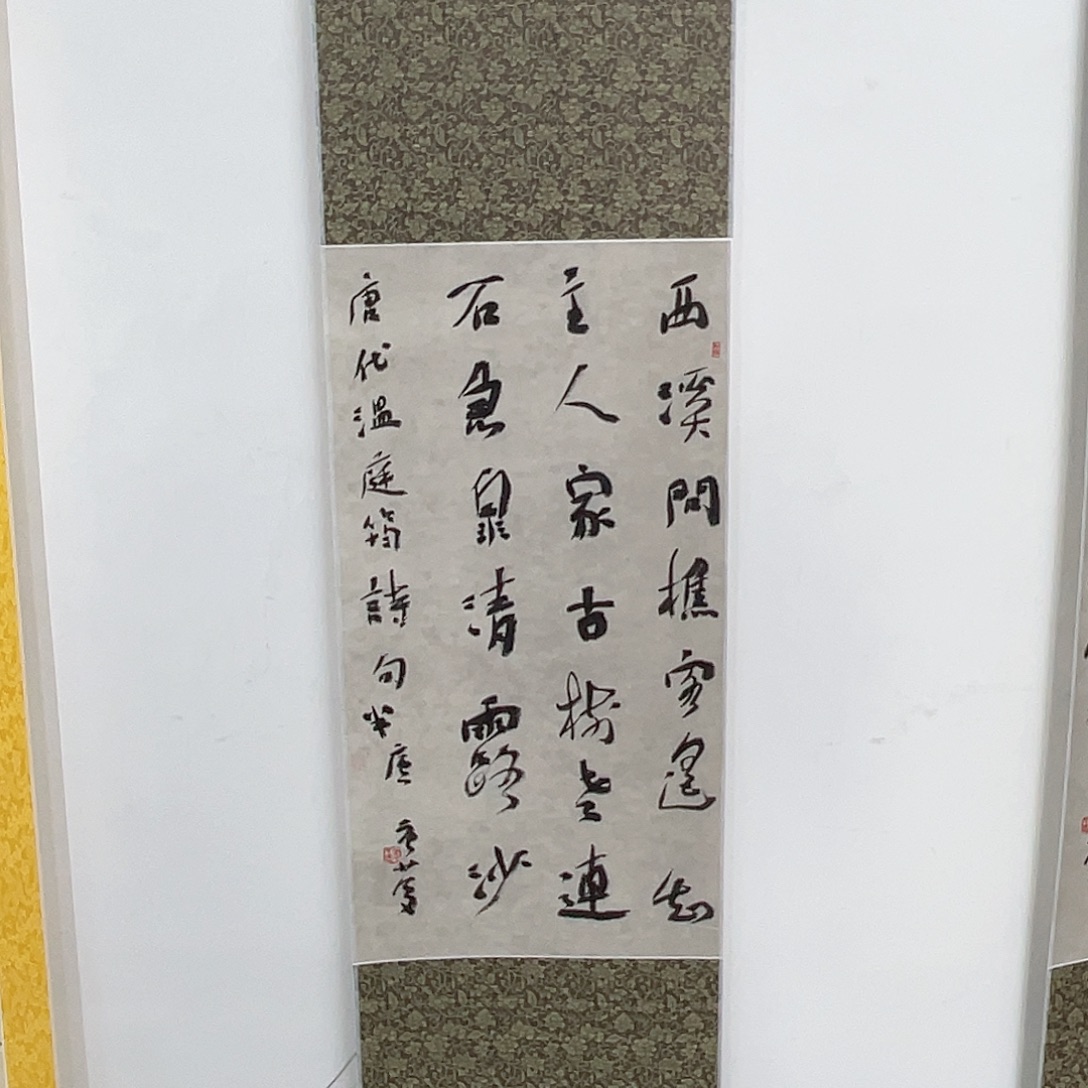 西溪問樵客遥知
主人家古樹老連
石急泉清露沙
唐代溫庭筠詩句